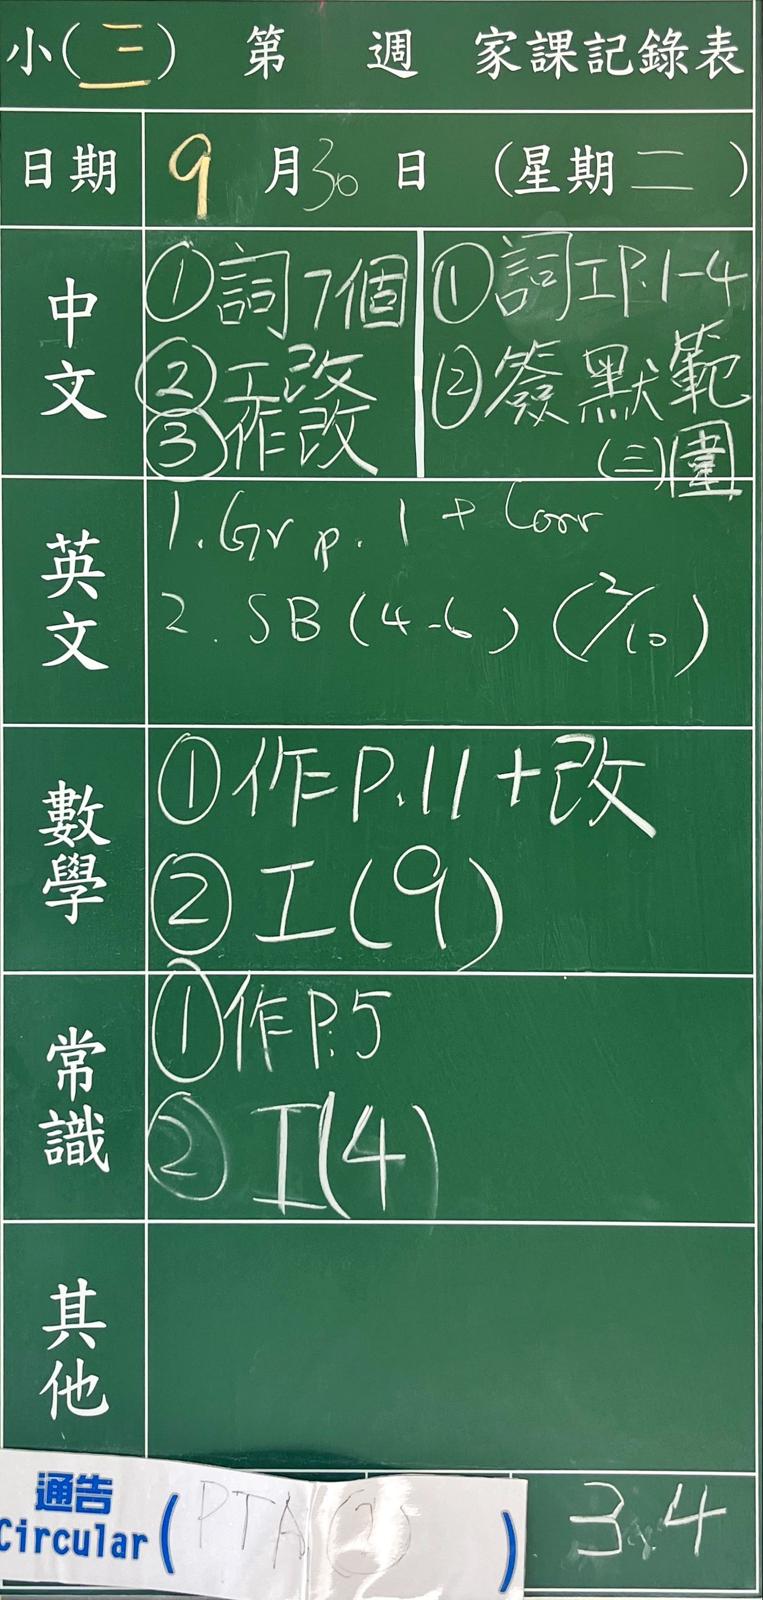 小(三) 第 週 家課記錄表
日期 9月30日 (星期二)
中文
①詞7個
②工改
③作改
①詞工P.1-4
②簽默範圍(三)
英文
1. Gr p. 1 + Corr
2. SB (4-6) (2/10)
數學
①作P.11+改
②工(9)
常識
①作P.5
②工(4)
其他
通告
Circular ( PTA (2) )
3.4